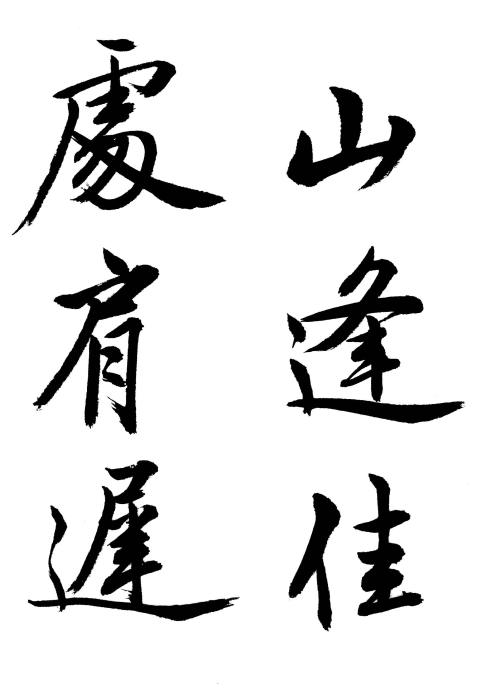 山逢佳
處肩遲